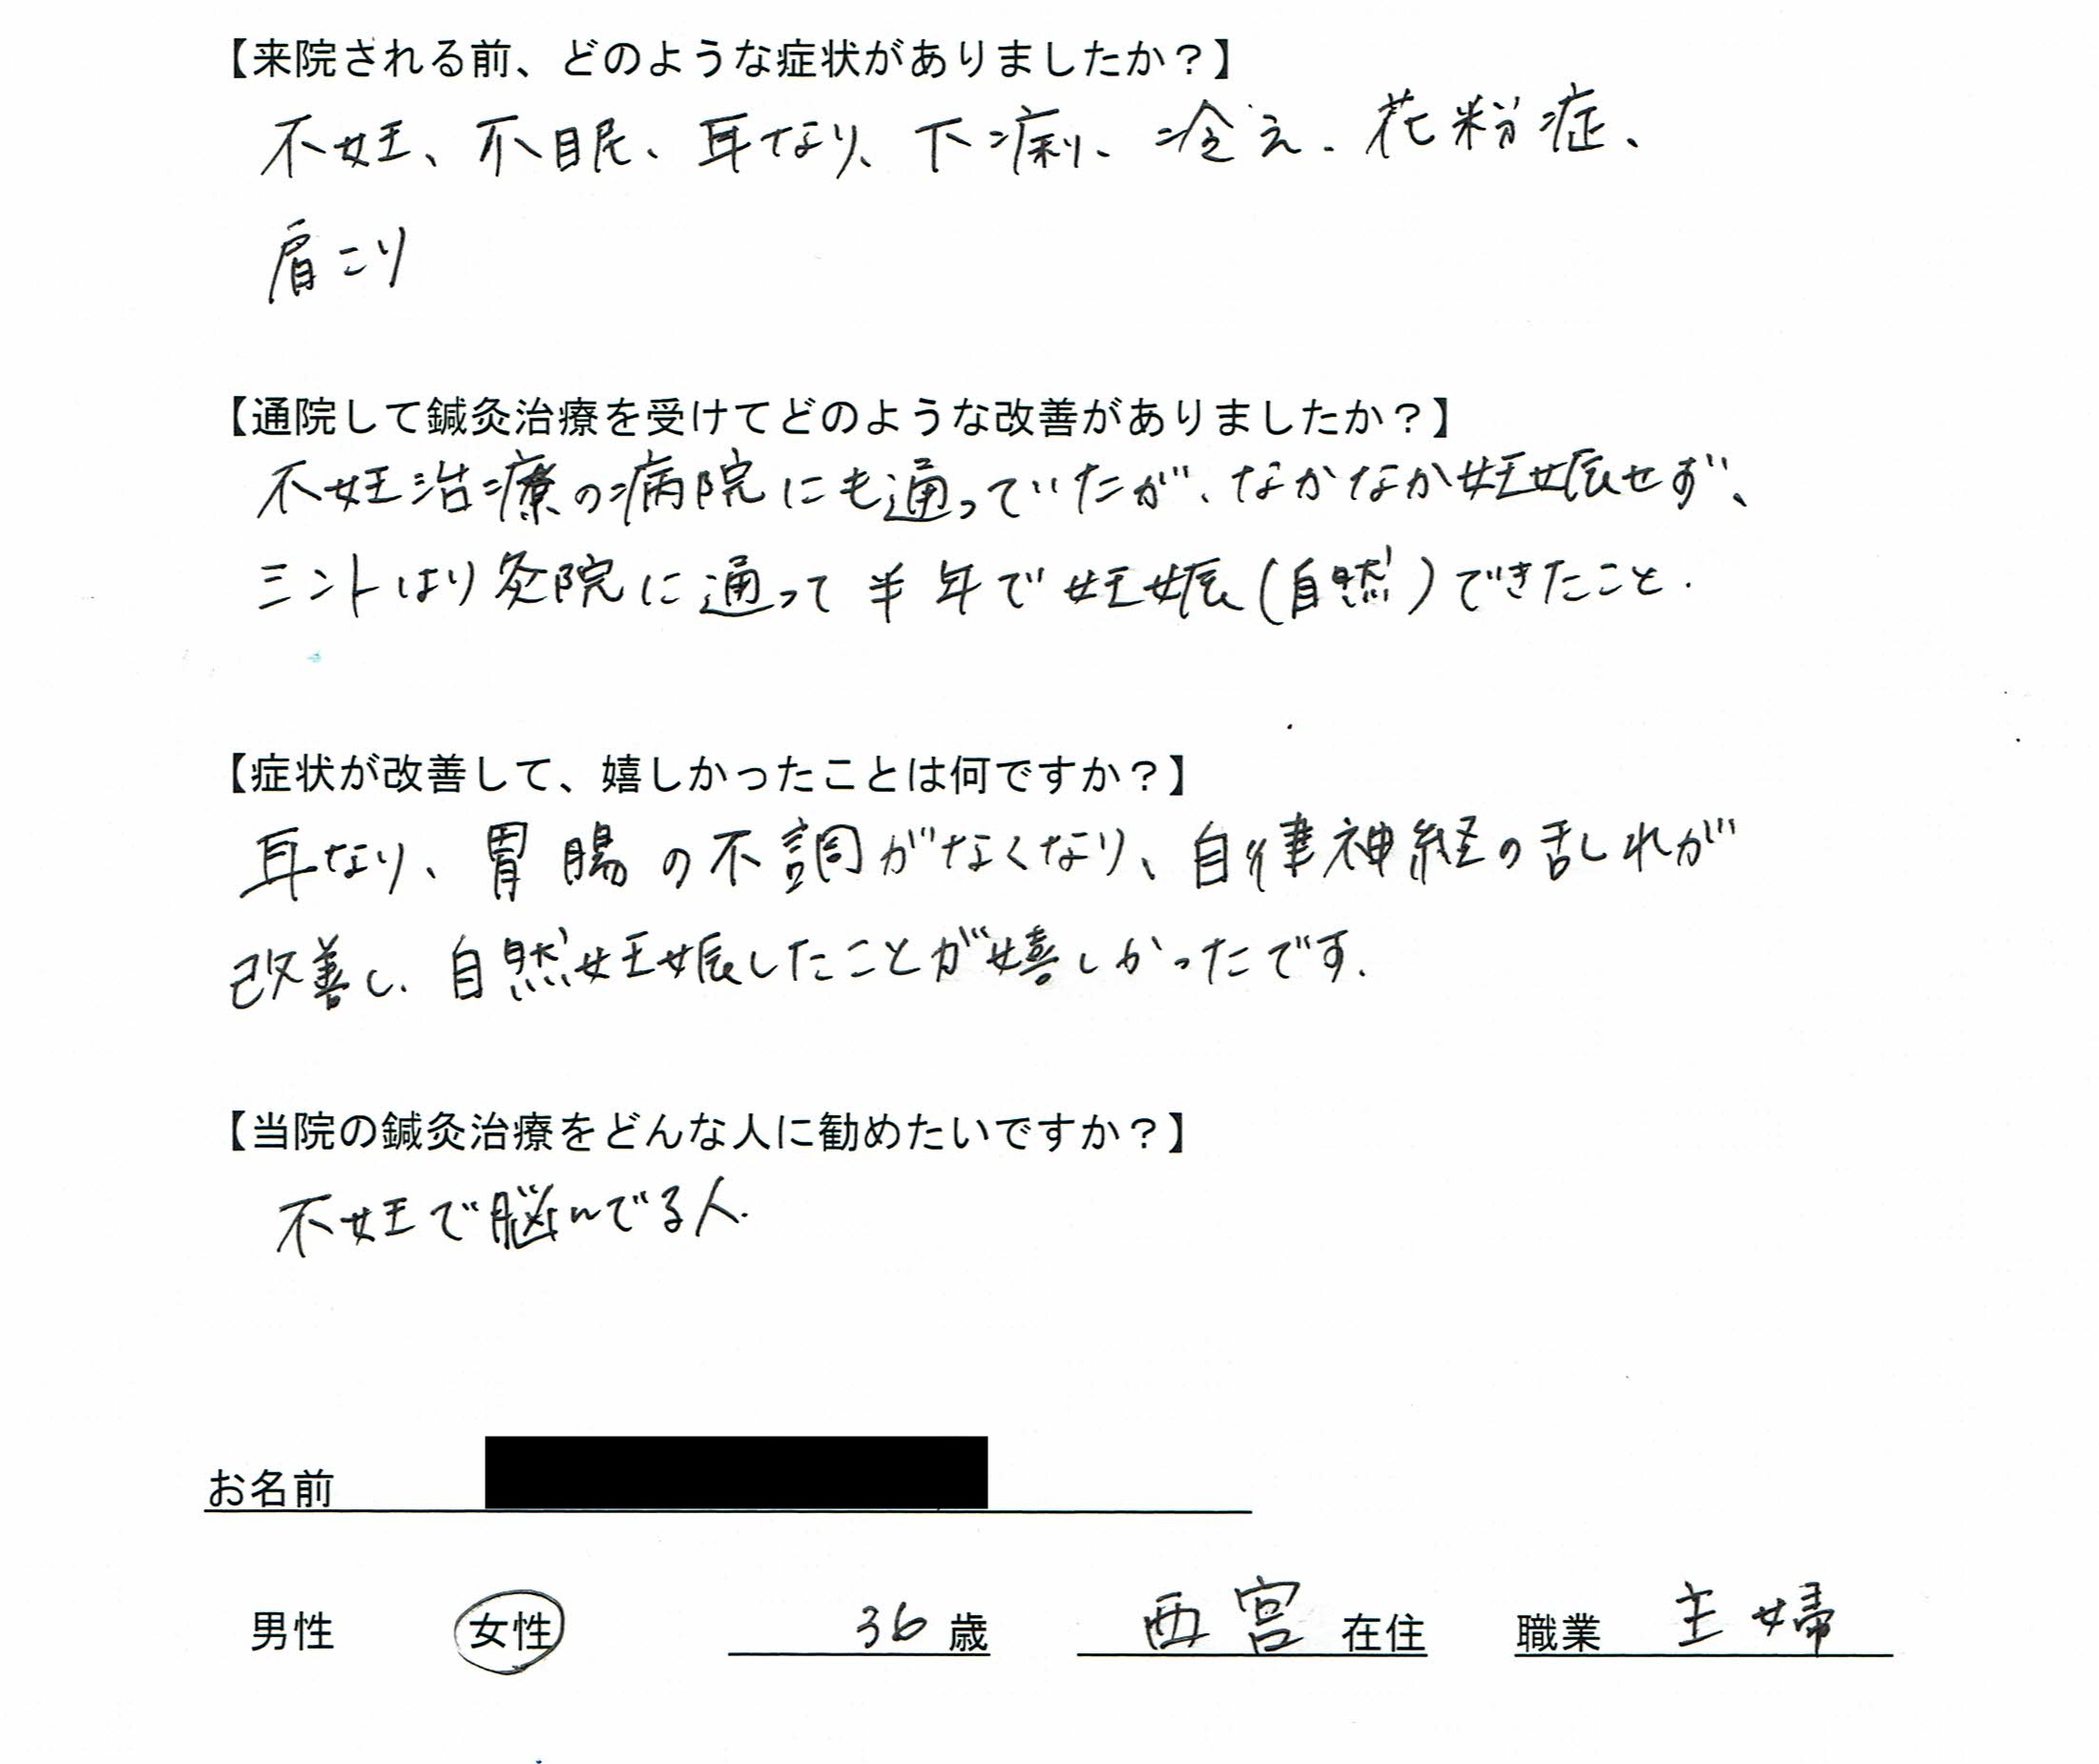 【来院される前、どのような症状がありましたか？】
不妊、不眠、耳なり、下痢、冷え、花粉症、
肩こり
【通院して鍼灸治療を受けてどのような改善がありましたか？】
不妊治療の病院にも通っていたが、なかなか妊娠せず、
ミントはり灸院に通って半年で妊娠(自然)できたこと.
【症状が改善して、嬉しかったことは何ですか？】
耳なり、胃腸の不調がなくなり、自律神経の乱れが
改善し、自然妊娠したことが嬉しかったです.
【当院の鍼灸治療をどんな人に勧めたいですか？】
不妊で脳んでる人.
お名前
男性 女性 36歳 西宮在住 職業 主婦